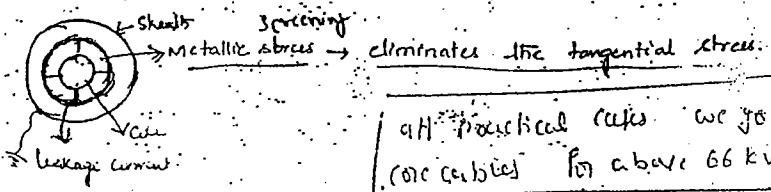 Sheath
Screening
Metallic stress → eliminates the tangential stress.
Core
leakage current.
all practical cases we go
core cables for above 66 kV